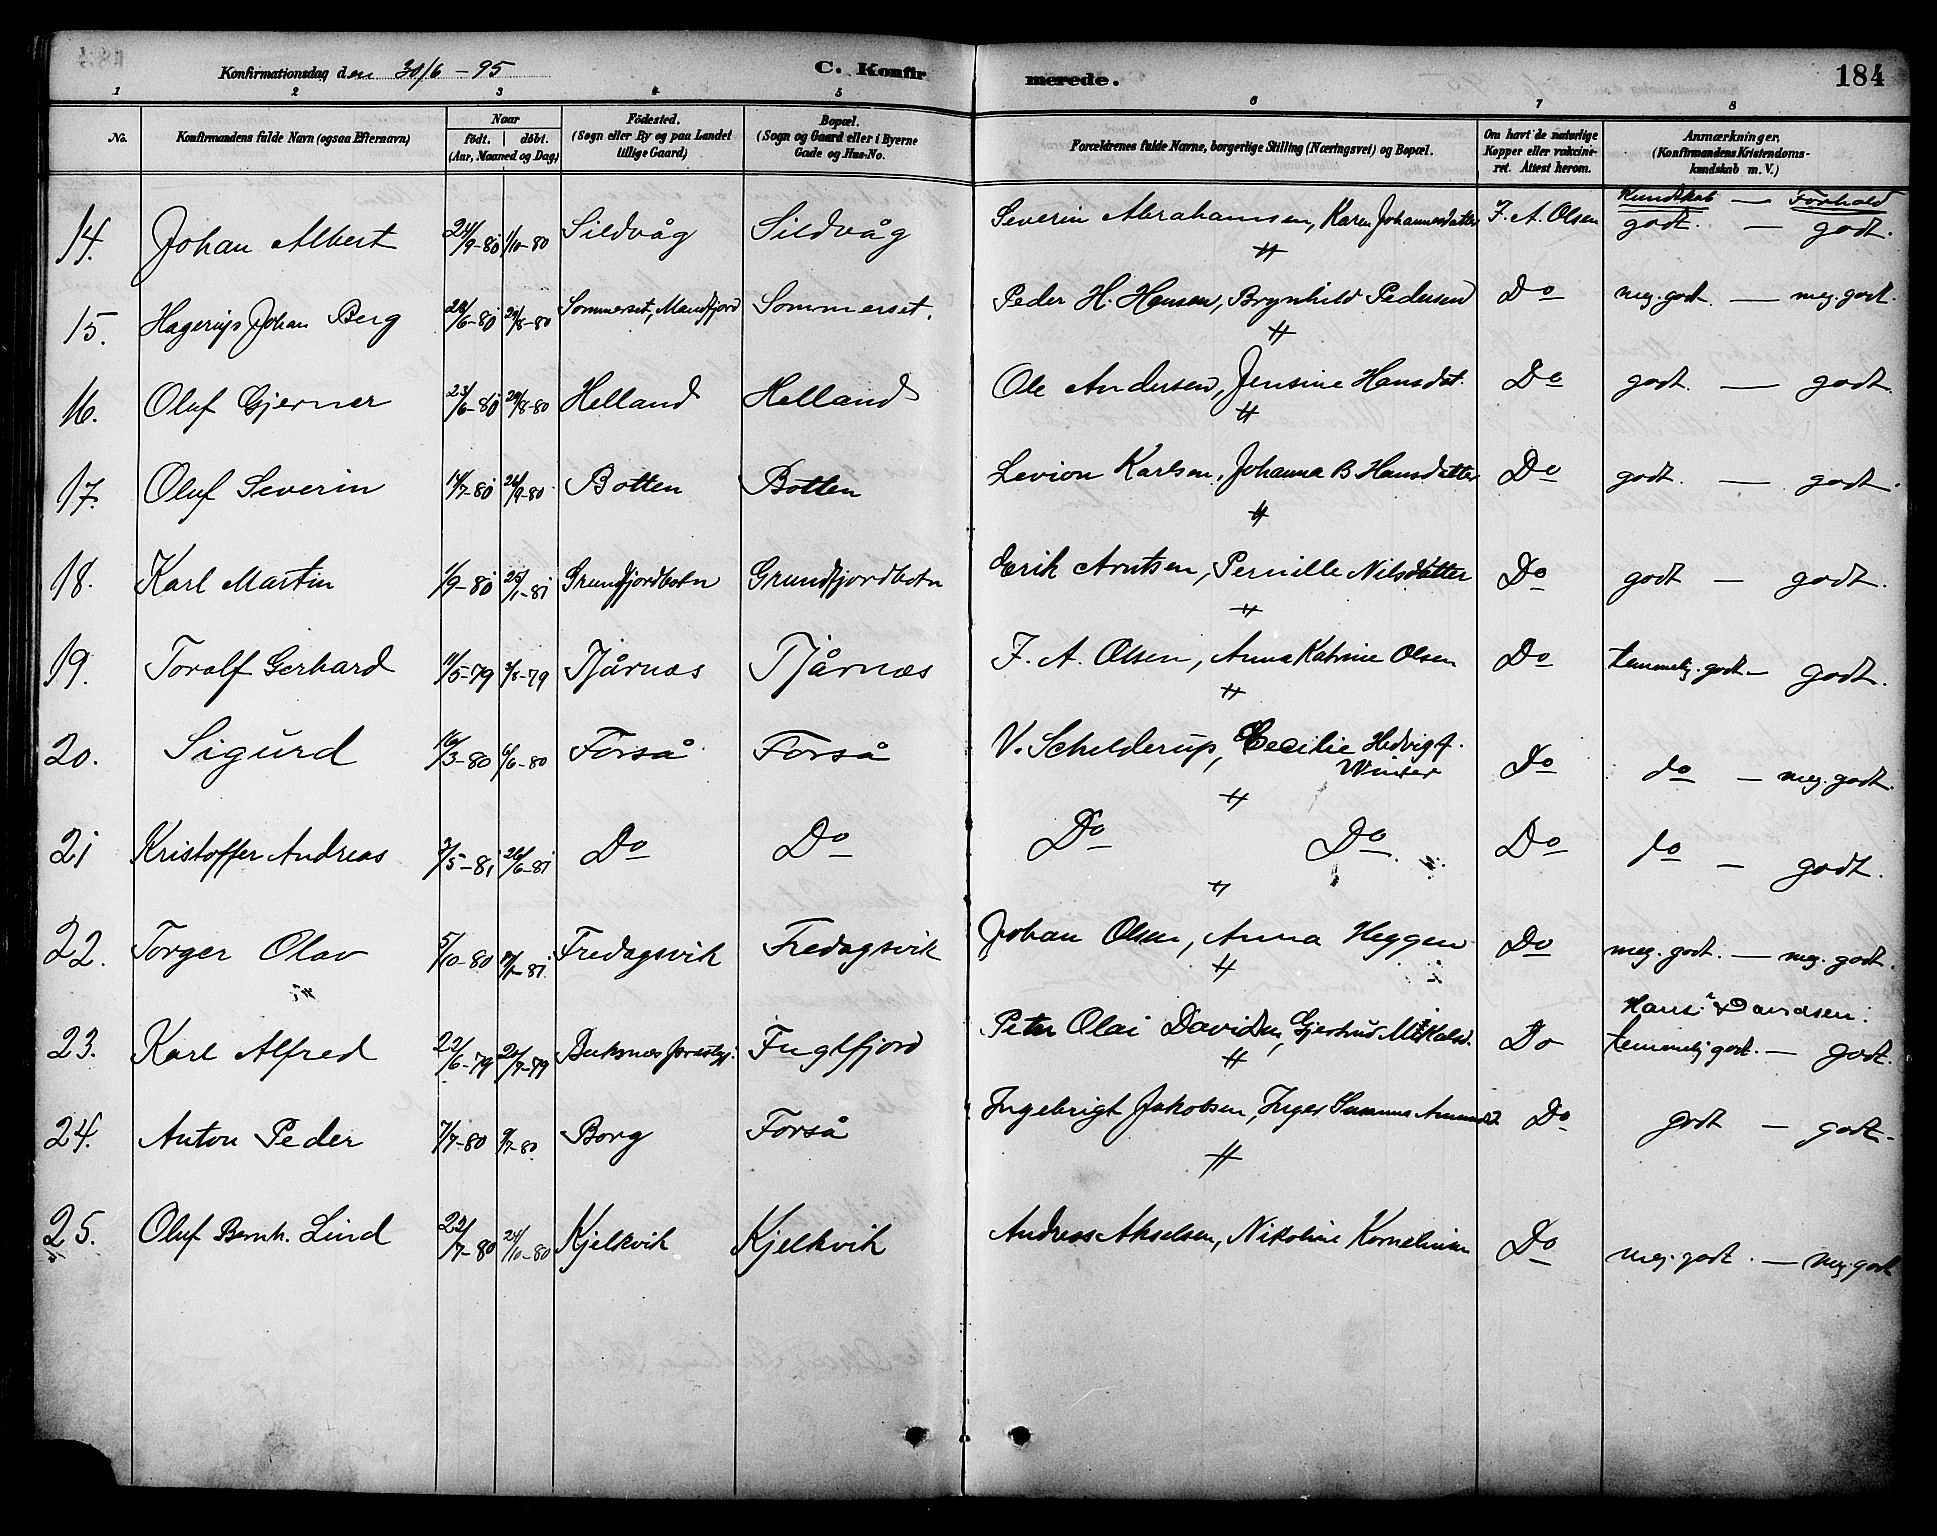 Konfirmationsdag den 30/6 - 95 C. Konfirmerede. 184
1 2 3 4 5 6 7 8
No. Konfirmandens fulde Navn (ogsaa Efternavn) Naar födt. döbt. (Aar, Maaned og Dag) Födested. (Sogn eller By og paa Landet tillige Gaard) Bopæl. (Sogn og Gaard eller i Byerne Gade og Hus-No. Forældrenes fulde Navne, borgerlige Stilling (Næringsvei) og Bopæl. Om havt de naturlige Kopper eller vakcineret. Attest herom. Anmærkninger. (Konfirmandens Kristendomskundskab m. V.)
Kundskab — Forhold
14. Johan Albert 24/9-80 1/10-80 Sildvåg Sildvåg Severin Abrahamsen, Karen Johannesdatter J. A. Olsen godt. — godt.
15. Johan Berg /6-80 29/8-80 Sommerset, Mandfjord Sommerset. Peder H. Hansen, Brynhild Pedersen Do meg. godt. — meg. godt.
16. Oluf Gjerner 23/6-80 29/8-80 Helland Helland Ole Andersen, Jensine Hansdat. Do godt. — godt.
17. Oluf Severin 14/7-80 26/9-80 Botten Botten Levion Karlsen, Johanna B. Hansdatter Do godt. — godt.
18. Karl Martin 1/9-80 25/1-81 Grundfjordbotn Grundfjordbotn Erik Arntsen, Pernille Nilsdatter Do godt — godt.
19. Toralf Gerhard 11/5-79 3/8-79 Tjårnæs Tjårnæs J. A. Olsen, Anna Katrine Olsen Do temmelig. godt — godt.
20. Sigurd 16/3-80 6/6-80 Forså Forså V. Schelderup, Cecilie Hedvig f. Winter Do do — meg. godt.
21 Kristoffer Andreas /5-81 26/6-81 Do Do Do Do. Do do — godt.
22. Torger Olav 5/10-80 Fredagsvik Fredagsvik Johan Olsen, Anna Heggen Do meg. godt. — meg. godt.
23. Karl Alfred 22/6-79 20/7-79 Buksnæs Fuglfjord Peter Olai Davidsen, Gjertrud Mikalsd. Do temmelig godt. — godt.
24. Anton Peder 7/7-80 9/7-80 Borg Forså Ingebrigt Jakobsen, Inger Do godt — godt.
25. Oluf Bernh. Lind 22/7-80 24/10-80 Kjelkvik Kjelkvik Andreas Akselsen, Nikoline Do meg. godt. — meg. godt